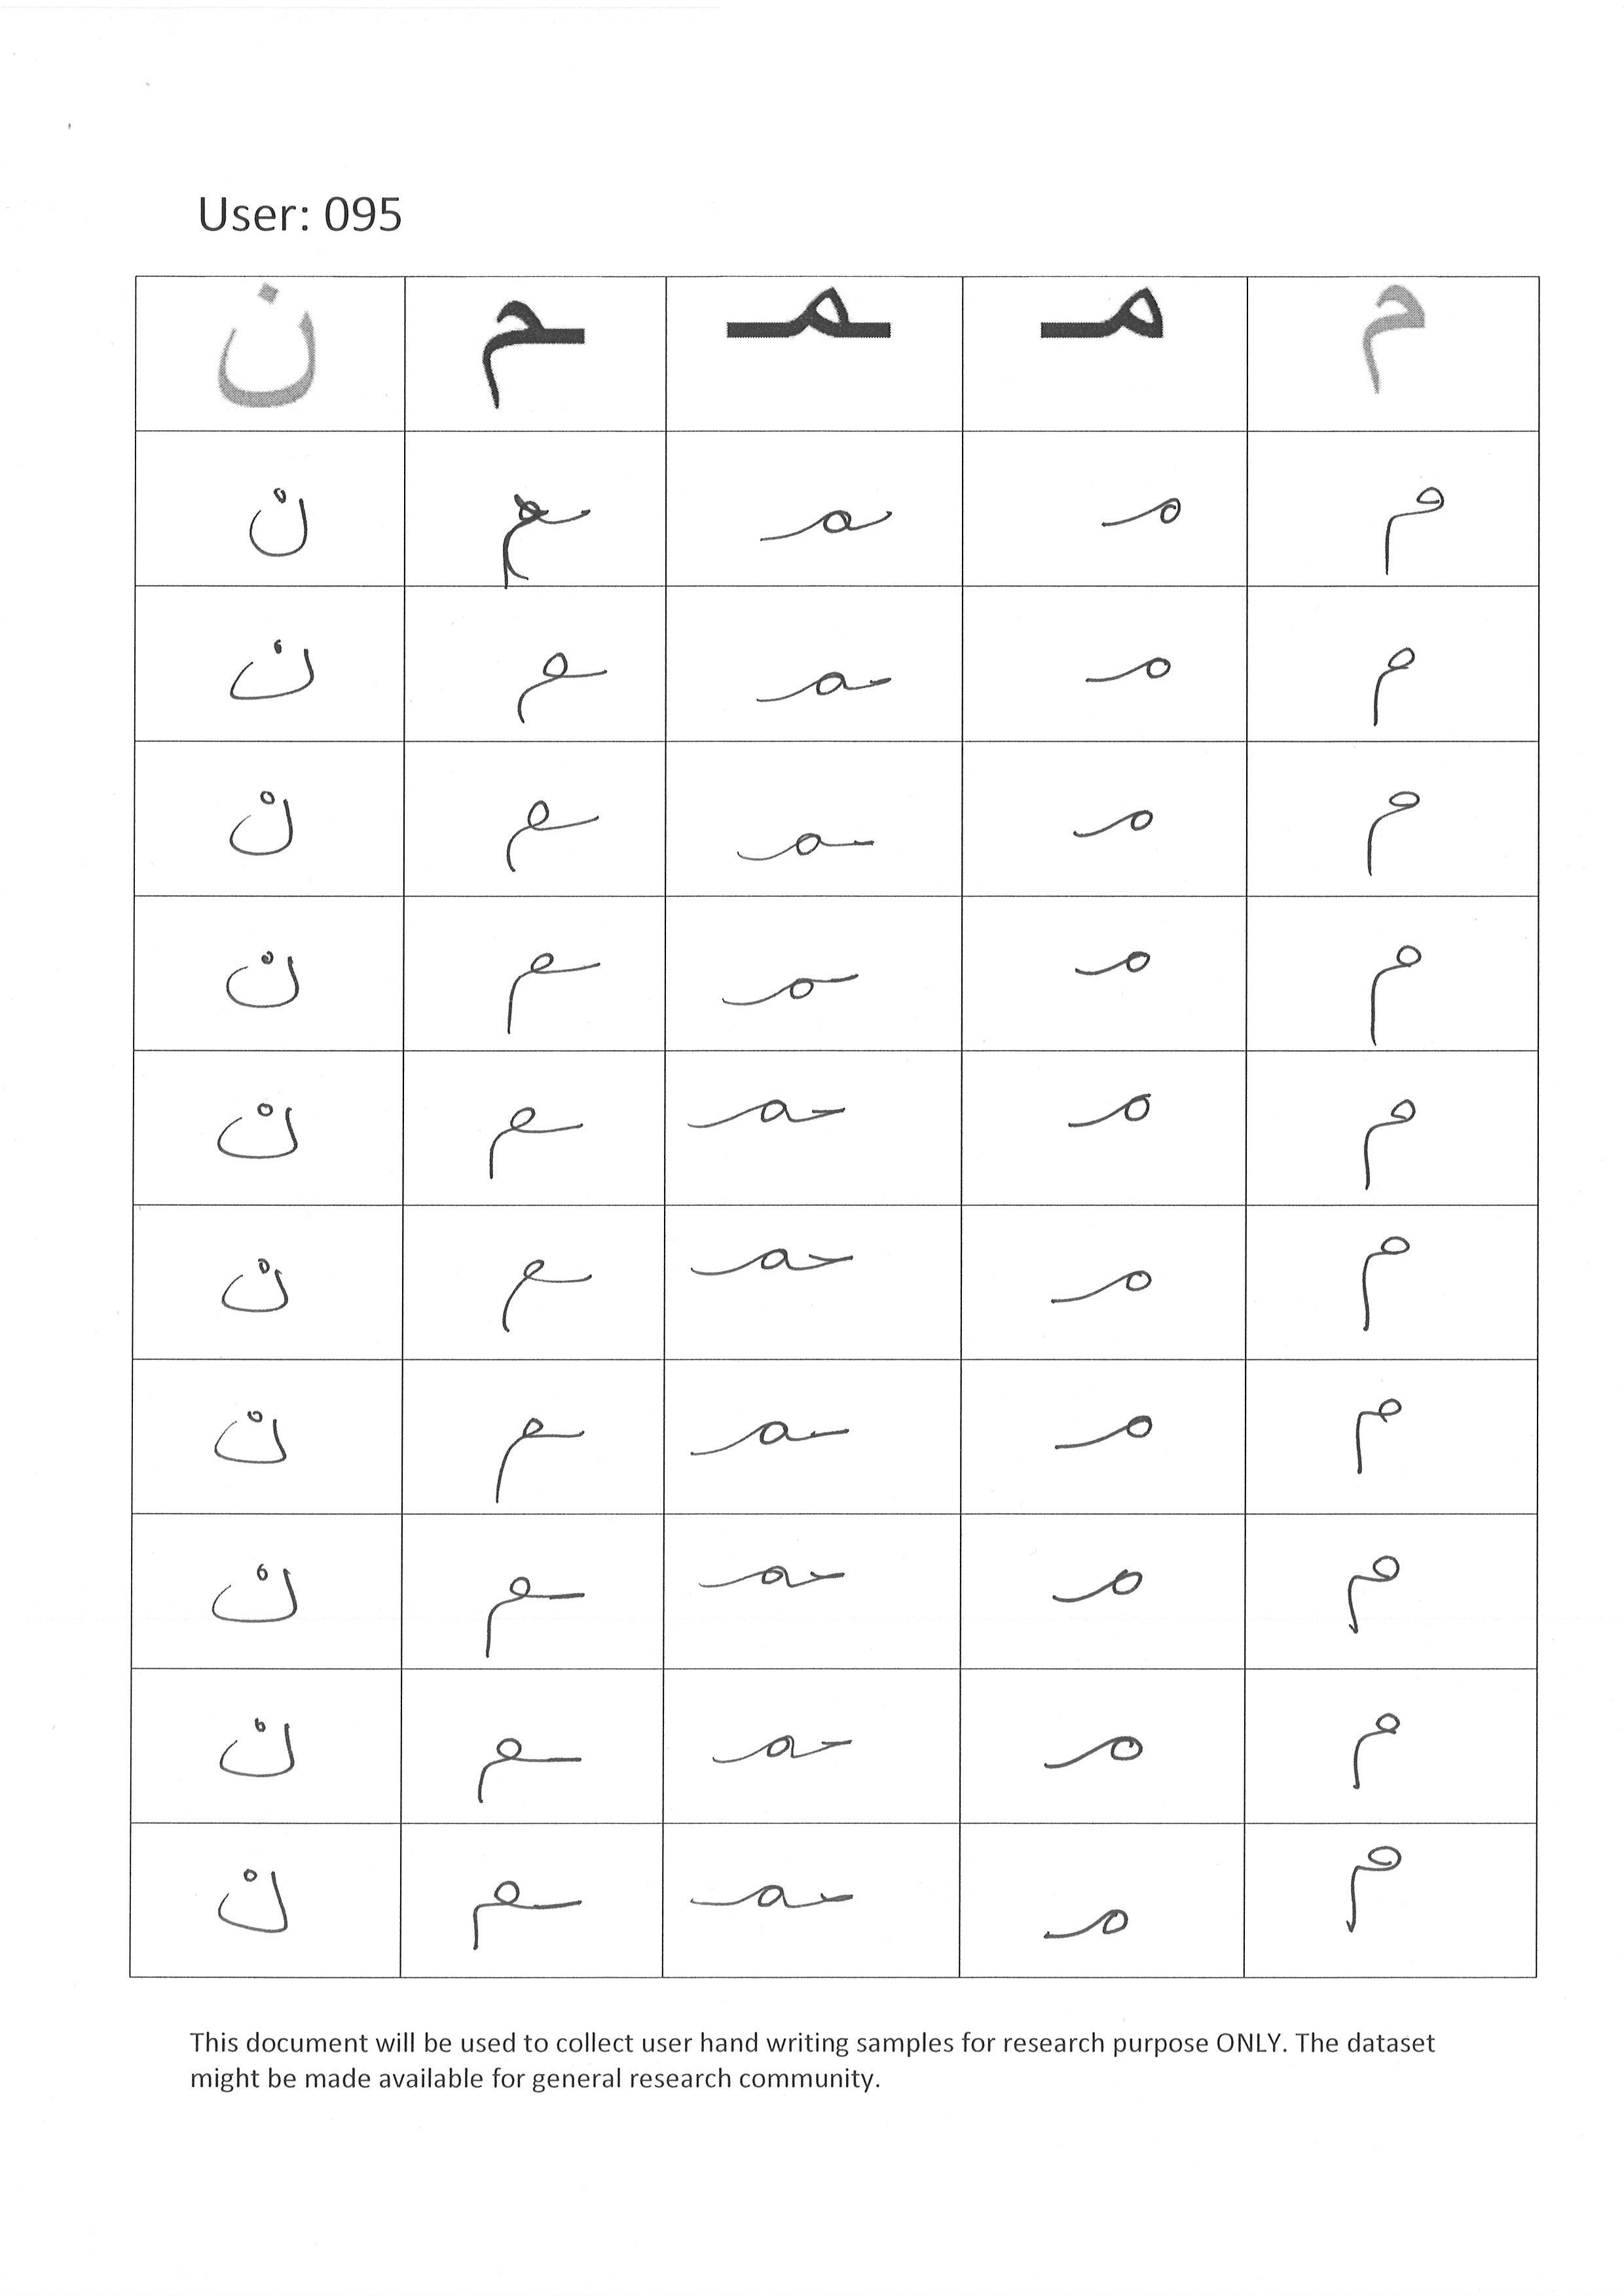 User: 095
م مـ ـمـ ـم ن
م مـ ـمـ ـم ن
م مـ ـمـ ـم ن
م مـ ـمـ ـم ن
م مـ ـمـ ـم ن
م مـ ـمـ ـم ن
م مـ ـمـ ـم ن
م مـ ـمـ ـم ن
م مـ ـمـ ـم ن
م مـ ـمـ ـم ن
م مـ ـمـ ـم ن
This document will be used to collect user hand writing samples for research purpose ONLY. The dataset
might be made available for general research community.